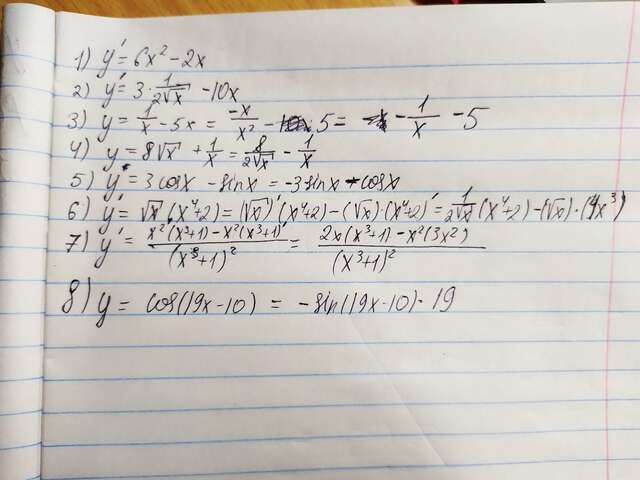 1) y' = 6x² - 2x
2) y' = 3 · 1/(2√x) - 10x
3) y = 1/x - 5x = -x/x² - 5 = - 1/x - 5
4) y = 8√x + 1/x = 8/(2√x) - 1/x
5) y' = 3cosx - sinx = -3sinx - cosx
6) y' = √x (x⁴+2) = (√x)' (x⁴+2) - (√x) · (x⁴+2)' = 1/(2√x) (x⁴+2) - (√x) · (4x³)
7) y' = (x²'(x³+1) - x²(x³+1)')/(x³+1)² = (2x(x³+1) - x²(3x²))/(x³+1)²
8) y = cos(19x-10) = -sin(19x-10) · 19